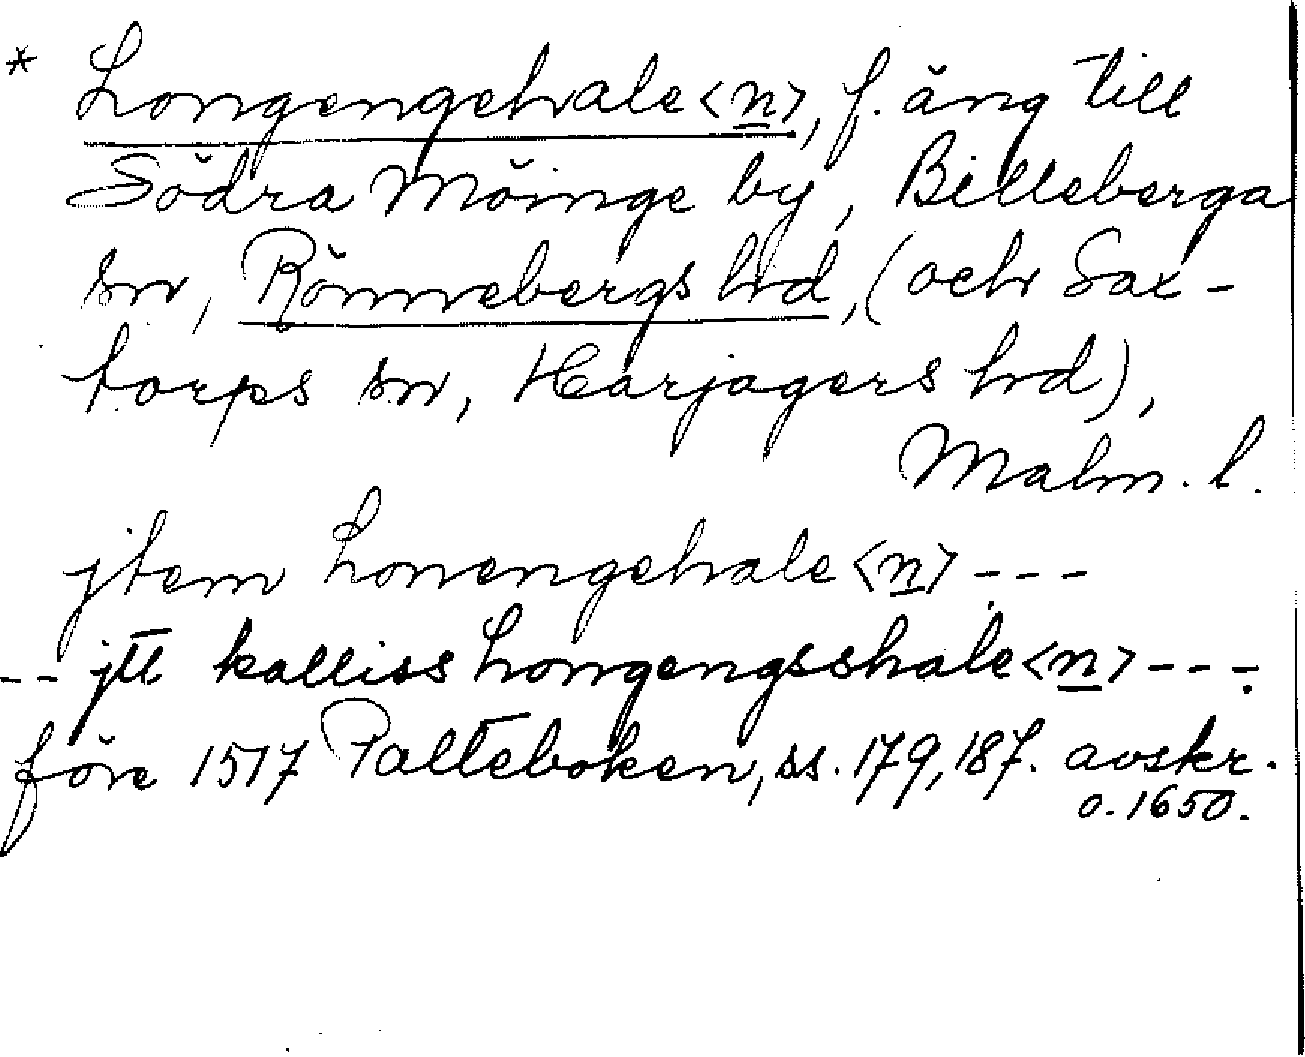 * Longengehale<n>, f. äng till
Södra Möinge by, Billeberga
sn, Rönnebergs hd, (och Sax-
torps sn, Harjagers hd),
Malm. l.
jtem Lonengehale<n> - - -
- - jtt kalliss Longengsshale<n> - - -.
före 1517 Palteboken, ss. 179, 187. avskr.
o. 1650.